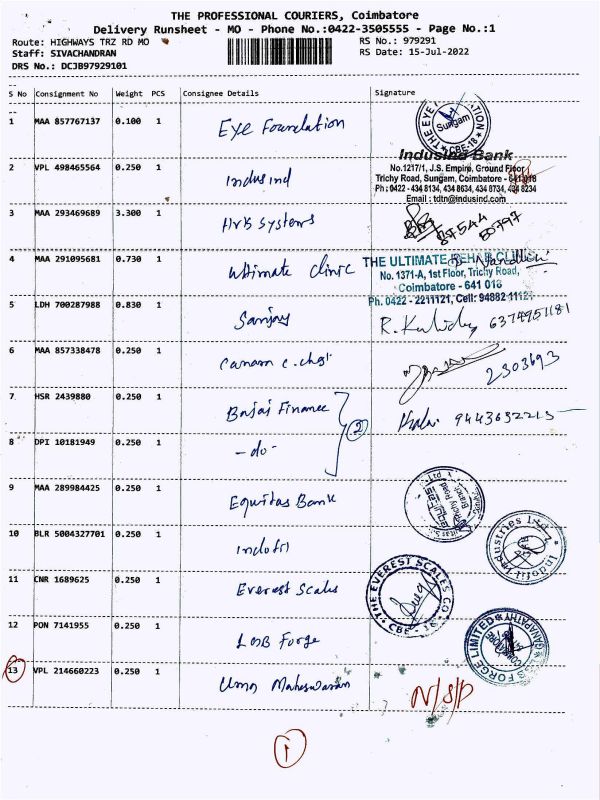 THE PROFESSIONAL COURIERS, Coimbatore
Delivery Runsheet - MO - Phone No.:0422-3505555 - Page No.:1
Route: HIGHWAYS TRZ RD MO RS No.: 979291
Staff: SIVACHANDRAN RS Date: 15-Jul-2022
DRS No.: DCJB97929101
S No Consignment No Weight PCS Consignee Details Signature
1 MAA 857767137 0.100 1 Eye Foundation THE EYE Sungam CBE-18
IndusInd Bank
2 VPL 498465564 0.250 1 Indusind No.1217/1, J.S. Empire, Ground Floor
Trichy Road, Sungam, Coimbatore - 641018
Ph : 0422 - 434 8134, 434 8634, 434 8734, 434 8234
Email : tdtn@indusind.com
3 MAA 293469689 3.300 1 Systems 87544 80797
4 MAA 291095681 0.730 1 Ultimate Clinic THE ULTIMATE REHAB CLINIC
No. 1371-A, 1st Floor, Trichy Road,
Coimbatore - 641 018
Ph. 0422 - 2211121, Cell: 94882 11121
5 LDH 700287988 0.830 1 Sanjay R. 6374951181
6 MAA 857338478 0.250 1 2303693
7 HSR 2439880 0.250 1 Bajaj Finance 2
8 DPI 10181949 0.250 1 -do-
9 MAA 289984425 0.250 1 Equitas Bank Trichy Road Branch
10 BLR 5004327701 0.250 1 Indofil Indofil Industries Ltd.
11 CNR 1689625 0.250 1 Everest Scales THE EVEREST SCALES CO. CBE - 18
12 PON 7141955 0.250 1 LGB Forge LGB FORGE LIMITED GANAPATHY
13 VPL 214660223 0.250 1 Uma Maheswaran N/S/P
1